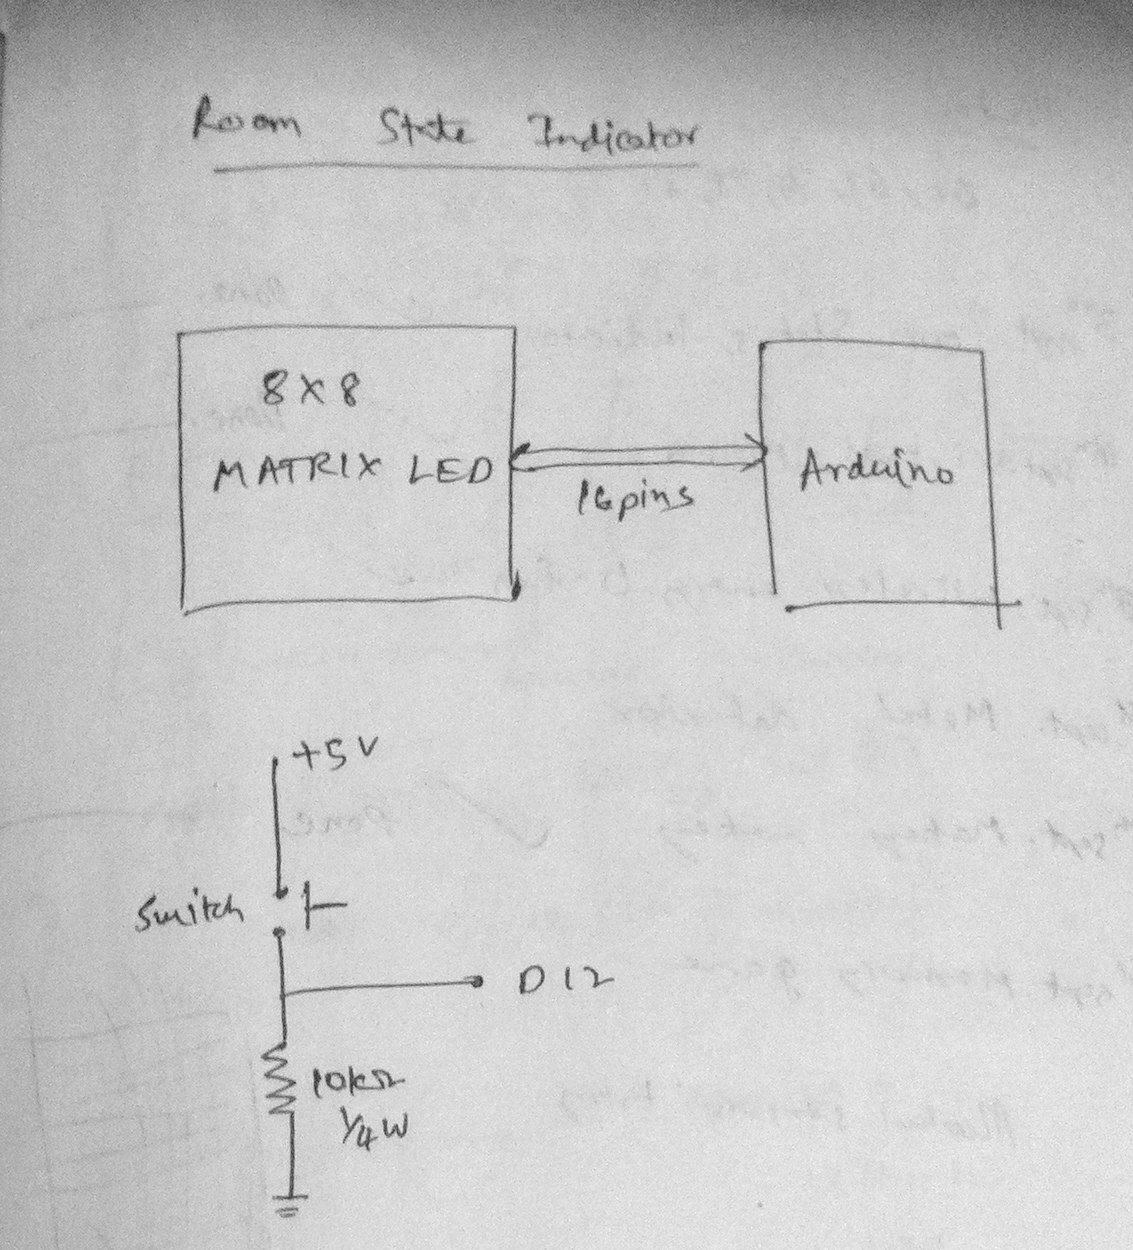 Room State Indicator
8X8
MATRIX LED
16pins
Arduino
+5V
Switch
D12
10kΩ
1/4W